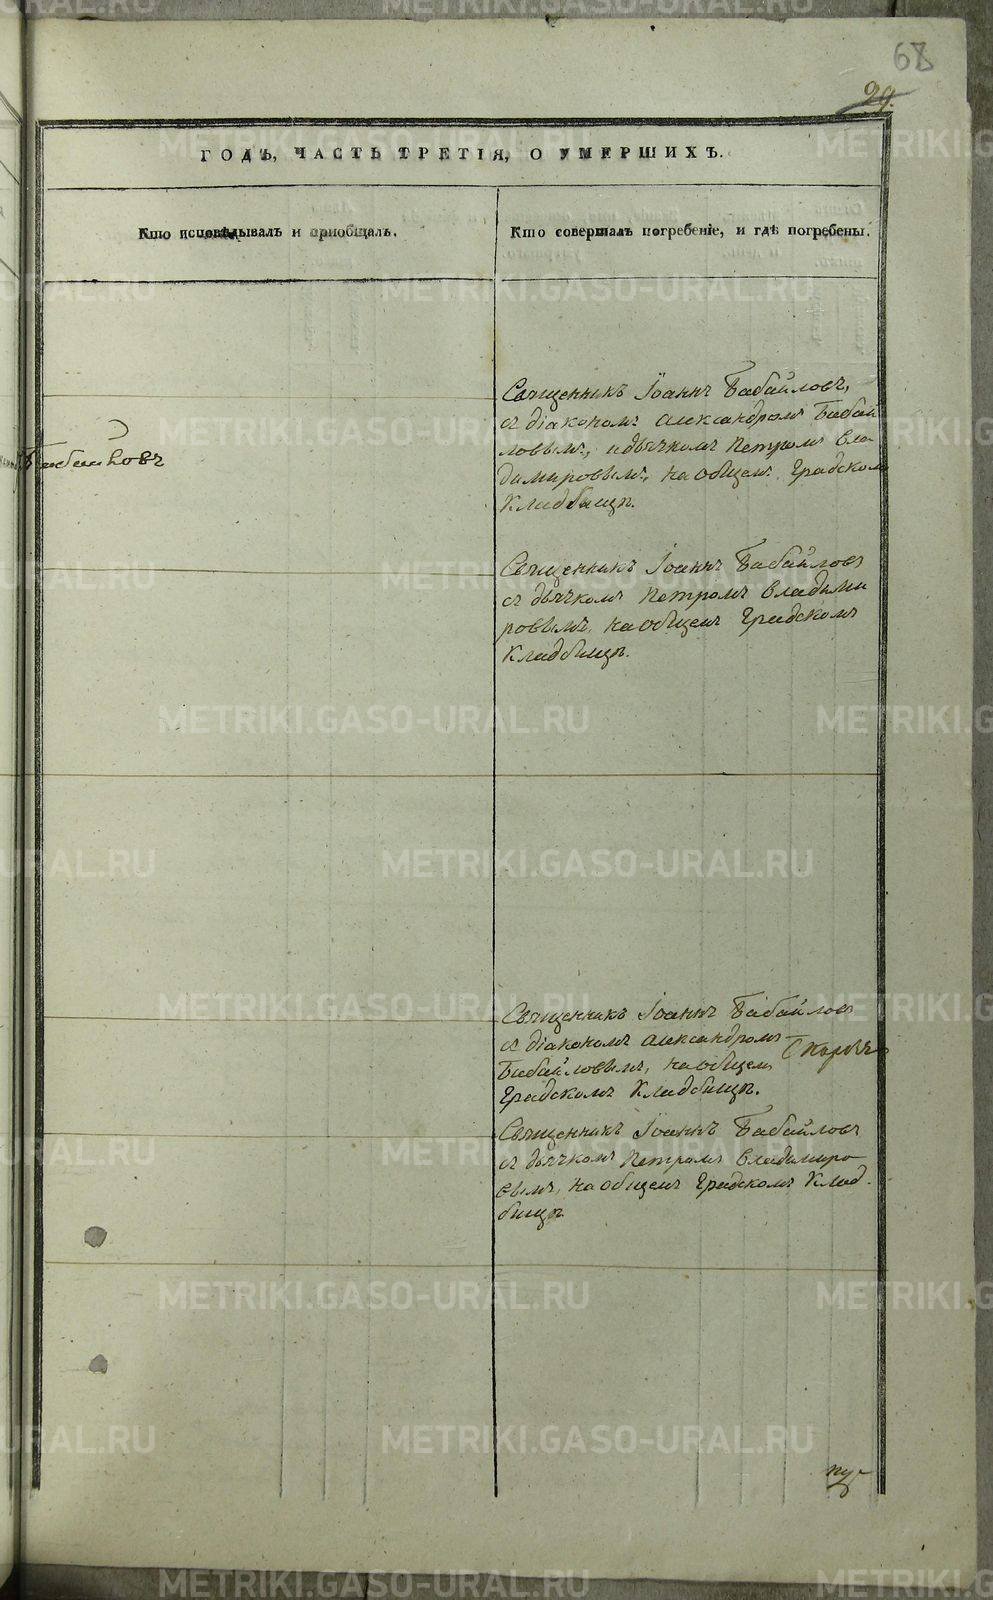 68
29.
ГОДЪ, ЧАСТЬ ТРЕТІЯ, О УМЕРШИХЪ.
Кто исповѣдывалъ и пріобщалъ.
Кто совершалъ погребеніе, и гдѣ погребены.
Священникъ Іоаннъ Бабайловъ,
съ діакономъ Александромъ Бабай
ловымъ, и дьячкомъ Петромъ Вла
димировымъ, на общемъ Градскомъ
Кладбищѣ.
Священникъ Іоаннъ Бабайловъ
съ дьячкомъ Петромъ Владими
ровымъ, на общемъ Градскомъ
Кладбищѣ.
Священникъ Іоаннъ Бабайловъ
съ діакономъ Александромъ
Бабайловымъ, на общемъ
Градскомъ Кладбищѣ.
Священникъ Іоаннъ Бабайловъ
съ дьячкомъ Петромъ Владимиро
вымъ, на общемъ Градскомъ Клад
бищѣ
METRIKI.GASO-URAL.RU